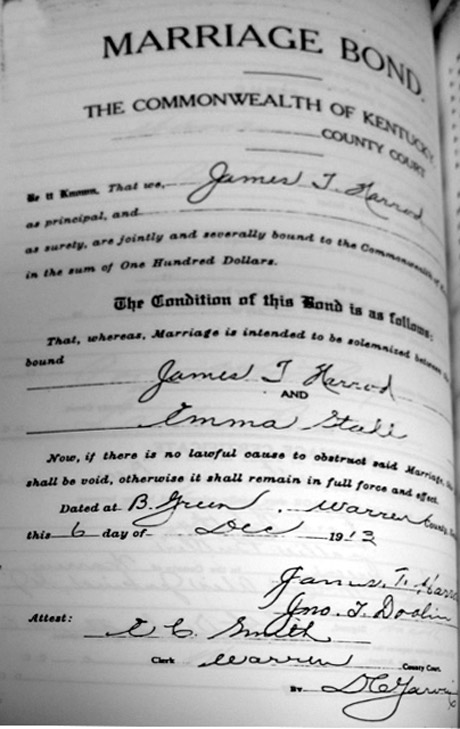 MARRIAGE BOND.
THE COMMONWEALTH OF KENTUCKY,
COUNTY COURT
Be it Known, That we, James T. Harrod
as principal, and
as surety, are jointly and severally bound to the Commonwealth of
in the sum of One Hundred Dollars.
The Condition of this Bond is as follows:
That, whereas, Marriage is intended to be solemnized between the
bound
James T Harrod
AND
Emma Stall
Now, if there is no lawful cause to obstruct said Marriage,
shall be void, otherwise it shall remain in full force and effect.
Dated at B. Green, Warren County,
this 6 day of Dec 1913
James. T. Harro
Jno. T. Doolin
Attest:
E. C. Smith
Clerk Warren County Court.
By